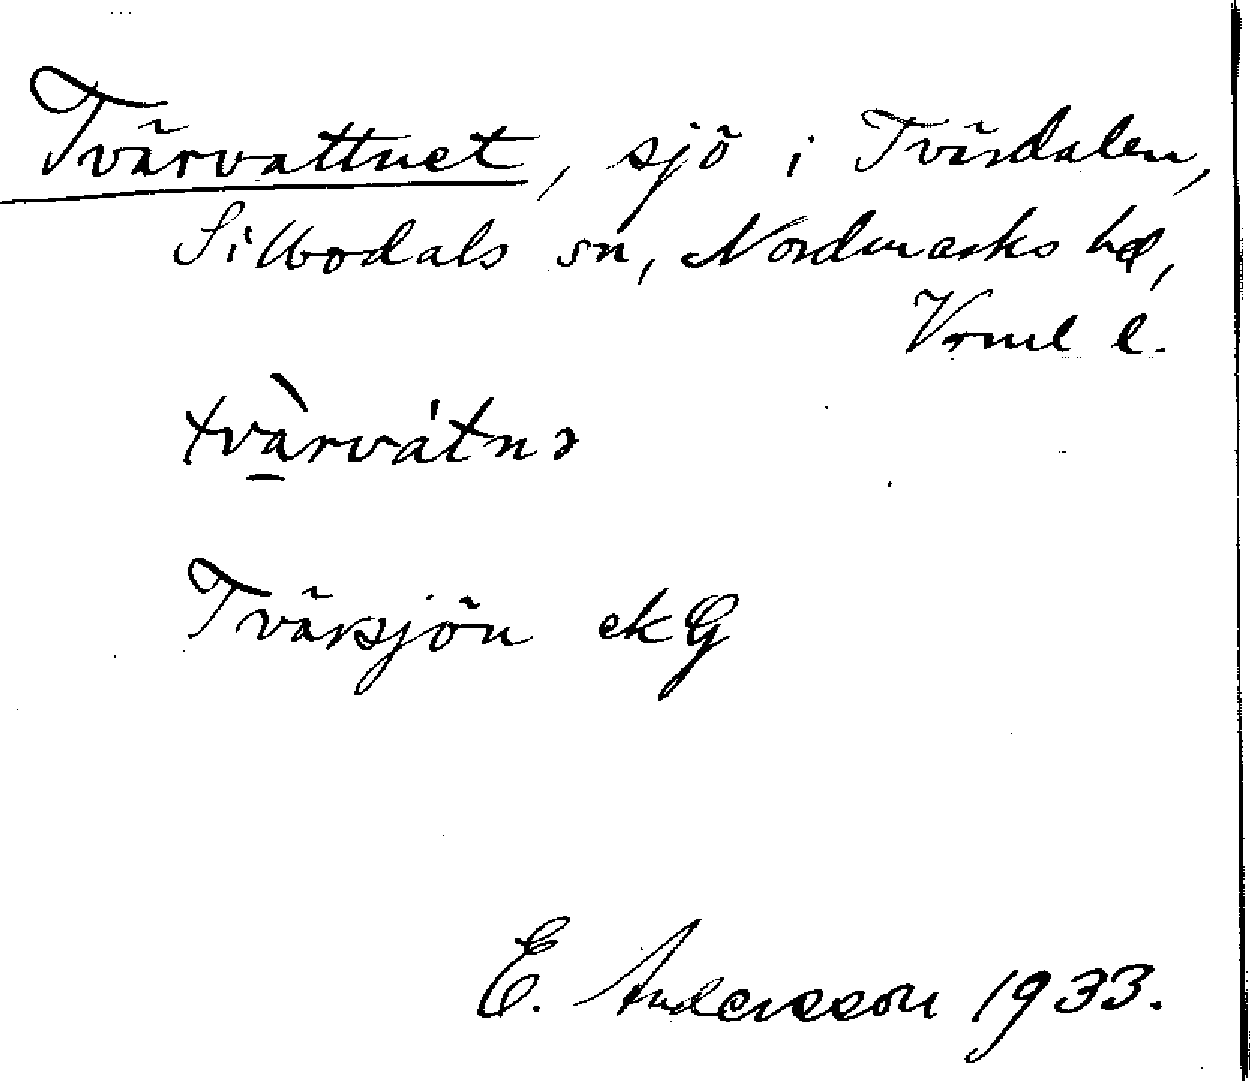 Tvärvattnet, sjö i Tvärdalen,
Silbodals sn, Nordmarks hd,
Vrml l.
tvàrvátnə
Tvärsjön ekG
E. Andersson 1933.